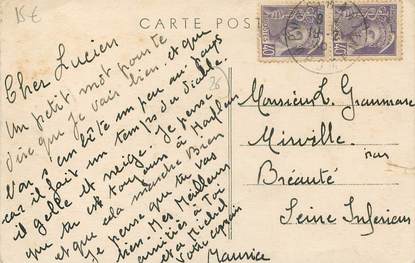 15€
CARTE POST
Cher Lucien
Un petit mot pour te
dire que je vais bien et que
l'on s'embête un peu au pays
car il fait un temps du diable.
il gelle et neige. Je pense
que tu es toujours à Harfleur
et que cela marche Bien
Je pense que tu vas
bien. Mes Meilleurs
amitiés à Toi
et a Michel
Votre copain
Maurice
Monsieur L. Grammare
Mirville
par
Bréauté
Seine Inferieur